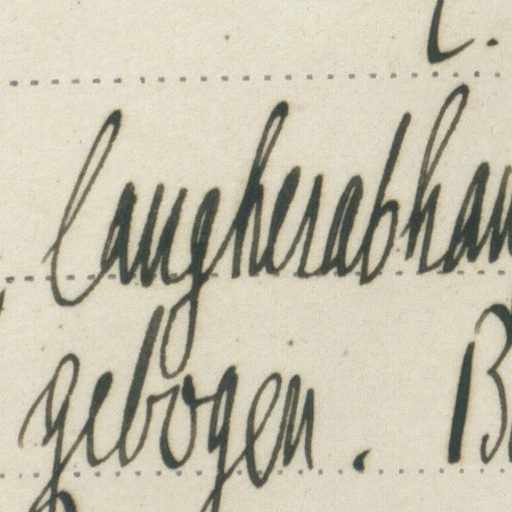 langherabhan
gebogen. B